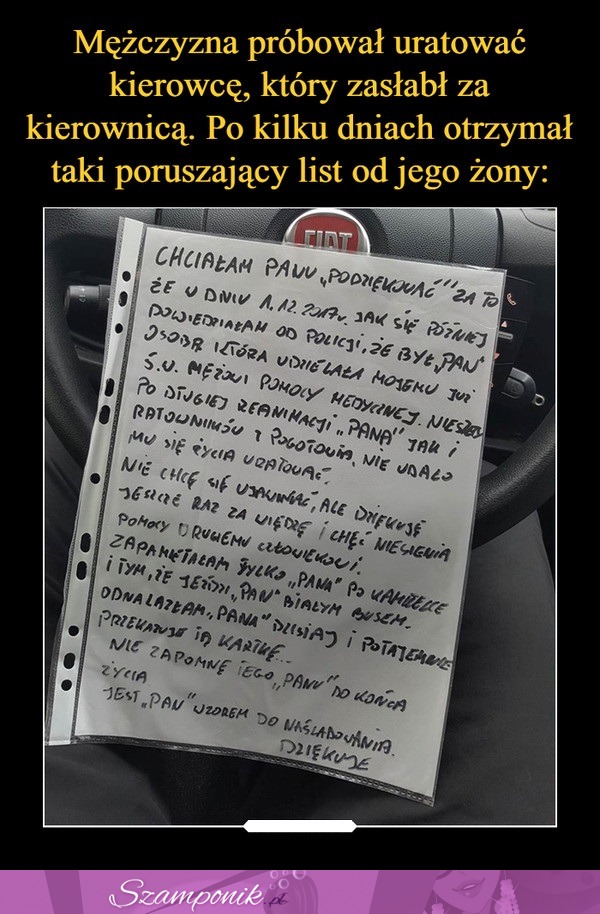 Mężczyzna próbował uratować
kierowcę, który zasłabł za
kierownicą. Po kilku dniach otrzymał
taki poruszający list od jego żony:
FIAT
CHCIAŁAM PANU „PODZIĘKOWAĆ" ZA TO
ŻE W DNIU 1.12.2017r. JAK SIĘ PÓŹNIEJ
DOWIEDZIAŁAM OD POLICJI, ŻE BYŁ „PAN"
OSOBĄ KTÓRA UDZIELAŁA MOJEMU JUŻ
Ś.P. MĘŻOWI POMOCY MEDYCZNEJ. NIESTETY
PO DŁUGIEJ REANIMACJI „PANA" JAK I
RATOWNIKÓW Z POGOTOWIA, NIE UDAŁO
MU SIĘ ŻYCIA URATOWAĆ.
NIE CHCĘ SIĘ UJAWNIAĆ, ALE DZIĘKUJĘ
JESZCZE RAZ ZA WIEDZĘ I CHĘĆ NIESIENIA
POMOCY DRUGIEMU CZŁOWIEKOWI.
ZAPAMIĘTAŁAM TYLKO „PANA" PO KAMIZELCE
I TYM, ŻE JEŹDZI „PAN" BIAŁYM BUSEM.
ODNALAZŁAM „PANA" DZISIAJ I POTAJEMNIE
PRZEKAZUJE TĄ KARTKĘ...
NIE ZAPOMNĘ TEGO „PANU" DO KOŃCA
ŻYCIA
JEST „PAN" WZOREM DO NAŚLADOWANIA.
DZIĘKUJE
Szamponik.pl